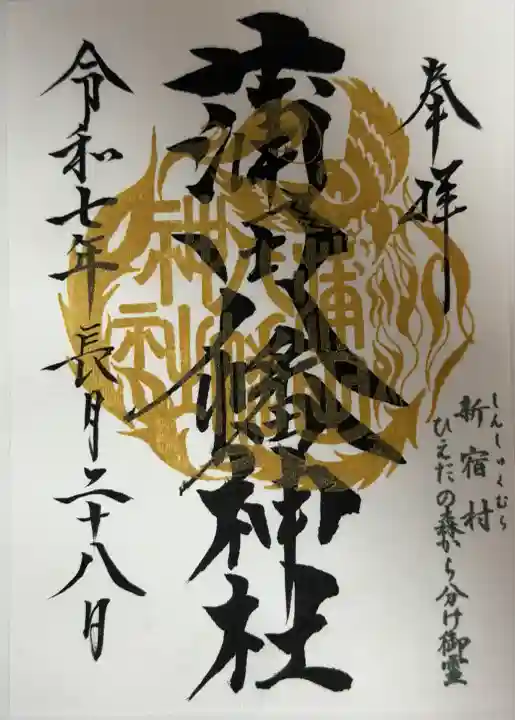 奉拝
しんしゅくむら
新宿村
ひえだの森から分け御霊
蒲田八幡神社
令和七年 長月二十八日